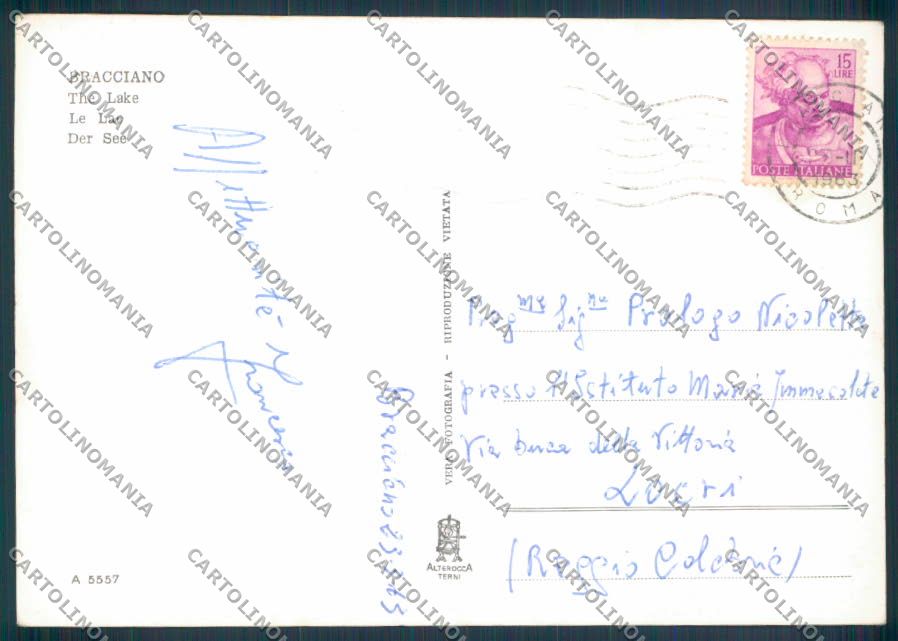 BRACCIANO
The Lake
Le Lac
Der See
15
LIRE
POSTE ITALIANE
1963
ROMA
Affettuosità
Francesco
Bracciano 23 63
VERA FOTOGRAFIA - RIPRODUZIONE VIETATA
Sig Prologo Nicoletta
presso Istituto Maria Immacolata
Via della Vittoria
Locri
(Reggio Calabria)
ALTEROCCA
TERNI
A 5557
CARTOLINOMANIA